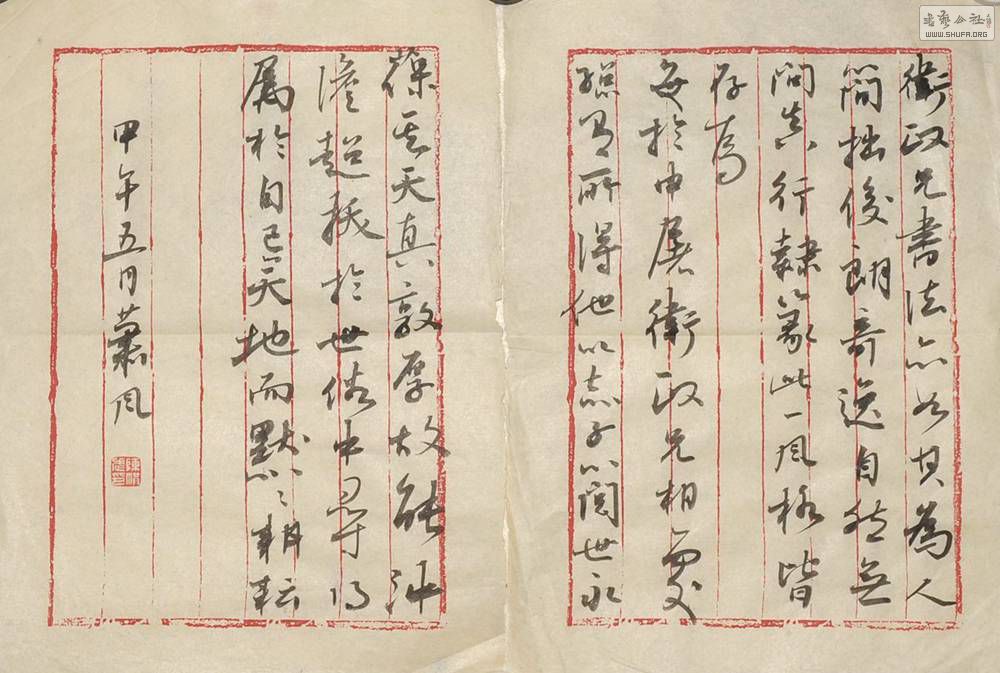 衛政兄書法亦如其為人
簡拙俊朗奇逸自然無
問真行隸篆此一風格皆
存焉
每於申屠衛政兄相處
總有所得他以赤子心閱世永
葆其天真敦厚故能沖
澹超拔於世俗中尋得
屬於自己天地而默〻耕耘
甲午五月蕭風
書藝公社
WWW.SHUFA.ORG